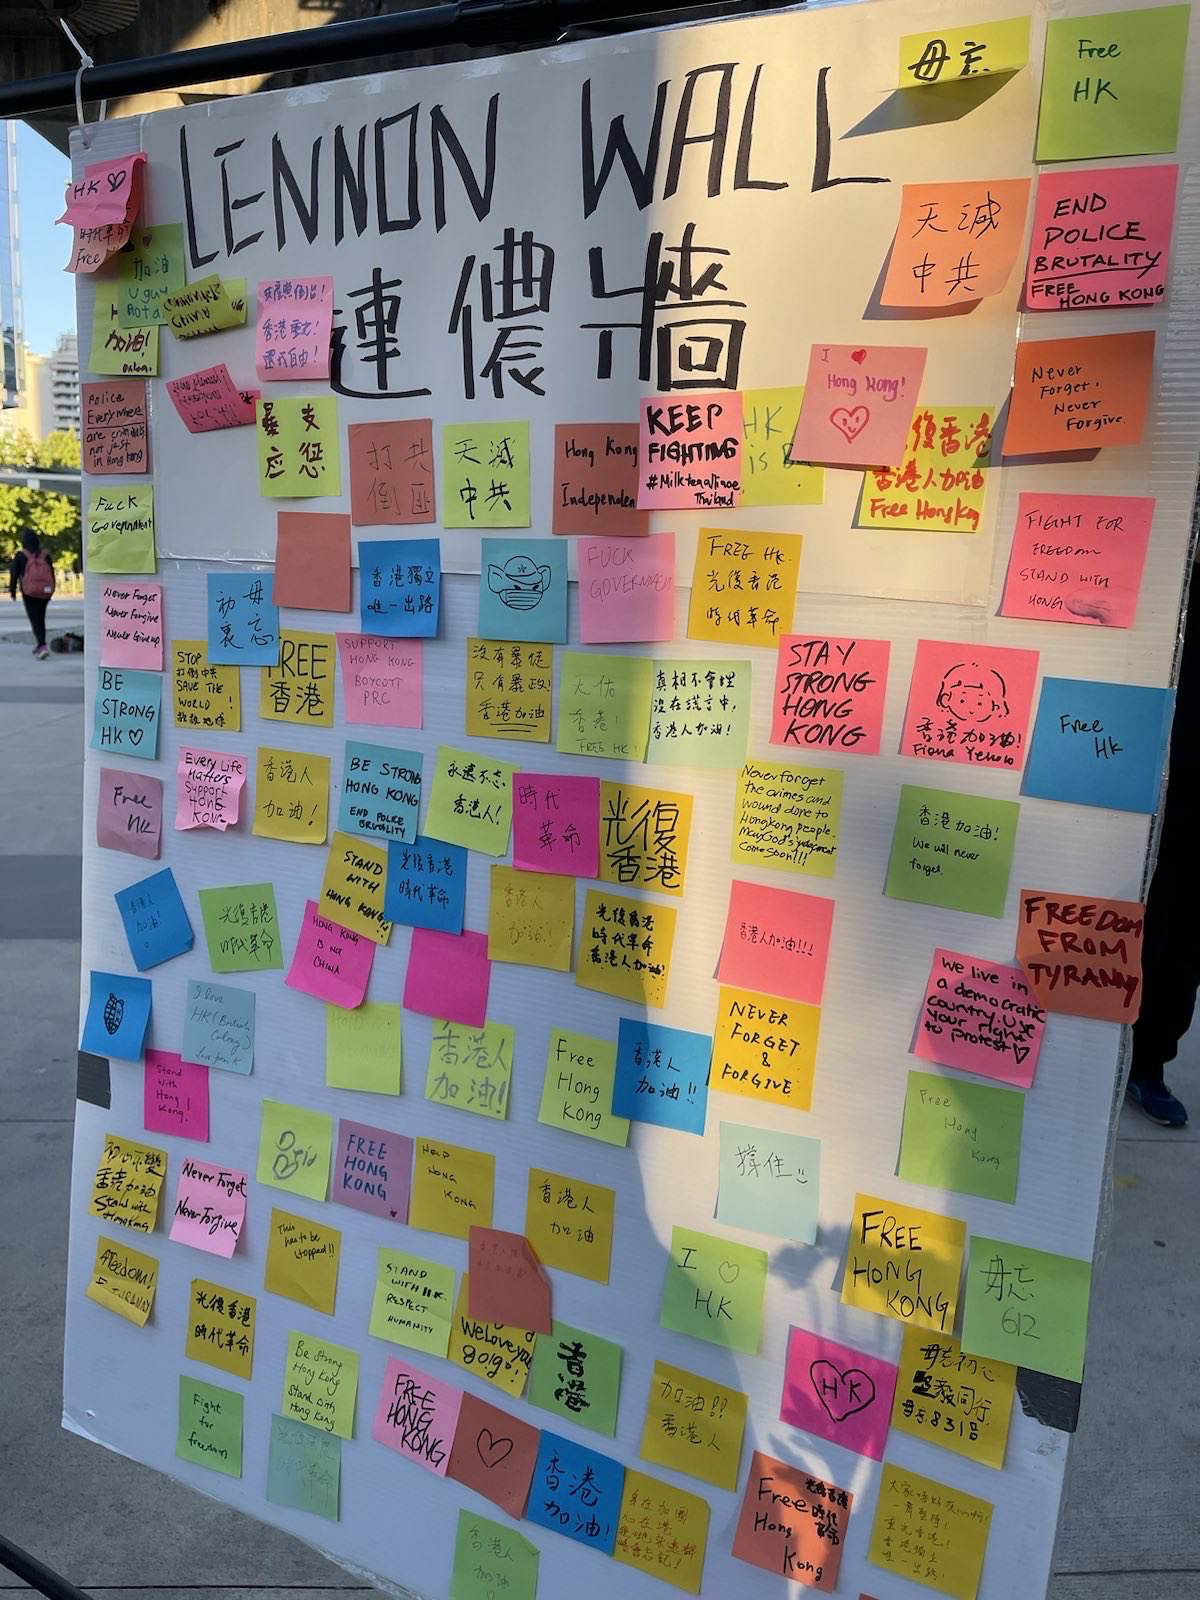 LENNON WALL
連儂牆
毋忘
Free
HK
HK ♡
Free
加油
天滅
中共
END
POLICE
BRUTALITY
FREE
HONG KONG
加油!
Police
Everywhere
are criminals
not just
in Hong Kong
香港
還我自由!
暴 支
應 您
打 共
倒 匪
天滅
中共
Hong Kong
KEEP
FIGHTING
#Milkteaalliance
Thailand
HK
is
I ♥
Hong Kong!
復香港
香港人加油
Free Hong Kong
Never
Forget.
Never
Forgive.
FUCK
Government
香港獨立
唯一出路
FUCK
GOVERNMENT
FREE HK.
光復香港
時代革命
FIGHT FOR
FREEDOM
STAND WITH
HONG
Never Forget
Never Forgive
Never Give up
毋忘
初衷
STOP
打倒中共
SAVE THE
WORLD
FREE
香港
SUPPORT
HONG KONG
BOYCOTT
PRC
沒有暴徒
只有暴政!
香港加油
天佑
香港!
FREE HK!
真相不會埋
沒在謊言中,
香港人加油!
STAY
STRONG
HONG
KONG
香港加油!
Fiona
Free
HK
BE
STRONG
HK ♡
Free
HK
Every Life
Matters
Support
HONG
KONG
香港人
加油!
BE STRONG
HONG KONG
END POLICE
BRUTALITY
永遠不忘
香港人!
時代
革命
光復
香港
Never forget
the crimes and
wound done to
Hongkong people.
May God's judgement
come soon!!!
香港加油!
We will never
forget.
STAND
WITH
HONG KONG!
光復香港
時代革命
香港人
加油!
光復香港
時代革命
香港人加油!
香港人加油!!!
FREEDOM
FROM
TYRANNY
加油!
光復香港
時代革命
HONG KONG
IS NOT
CHINA
We live in
a democratic
country. Use
your right
to protest ♡
I love
HK (British
Colony)
香港人
加油!
Free
Hong
Kong
香港人
加油!!
NEVER
FORGET
&
FORGIVE
Stand
With
Hong
Kong!
Free
Hong
Kong
初心不變
香港加油
Stand with
Hongkong
Never Forget
Never Forgive
FREE
HONG
KONG
HONG
KONG
香港人
加油
撐住
This
has to be
stopped!!
Freedom!
TYRANNY
光復香港
時代革命
STAND
WITH HK
RESPECT
HUMANITY
We Love you
gogo!
香港
I ♡
HK
FREE
HONG
KONG
毋忘
612
HK
毋忘初心
831
Fight
for
freedom
Be strong
Hong Kong
Stand with
Hong Kong
FREE
HONG
KONG
♡
香港
加油!
加油!!
香港人
身在加國
心在港
Free
Hong
Kong
光復香港
時代
革命
重光香港!
香港獨立
唯一出路!
香港人
加油